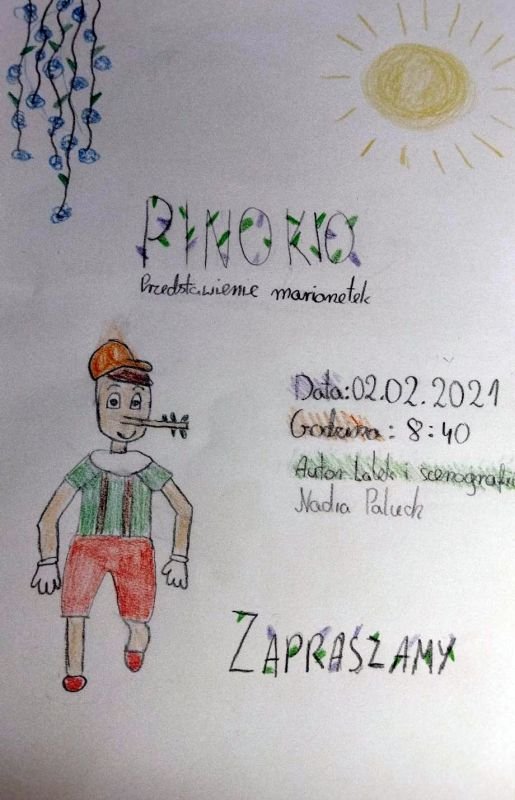 PINOKIO
Przedstawienie marionetek
Data: 02.02.2021
Godzina: 8:40
Autor lalek i scenografii
Nadia Paluch
ZAPRASZAMY